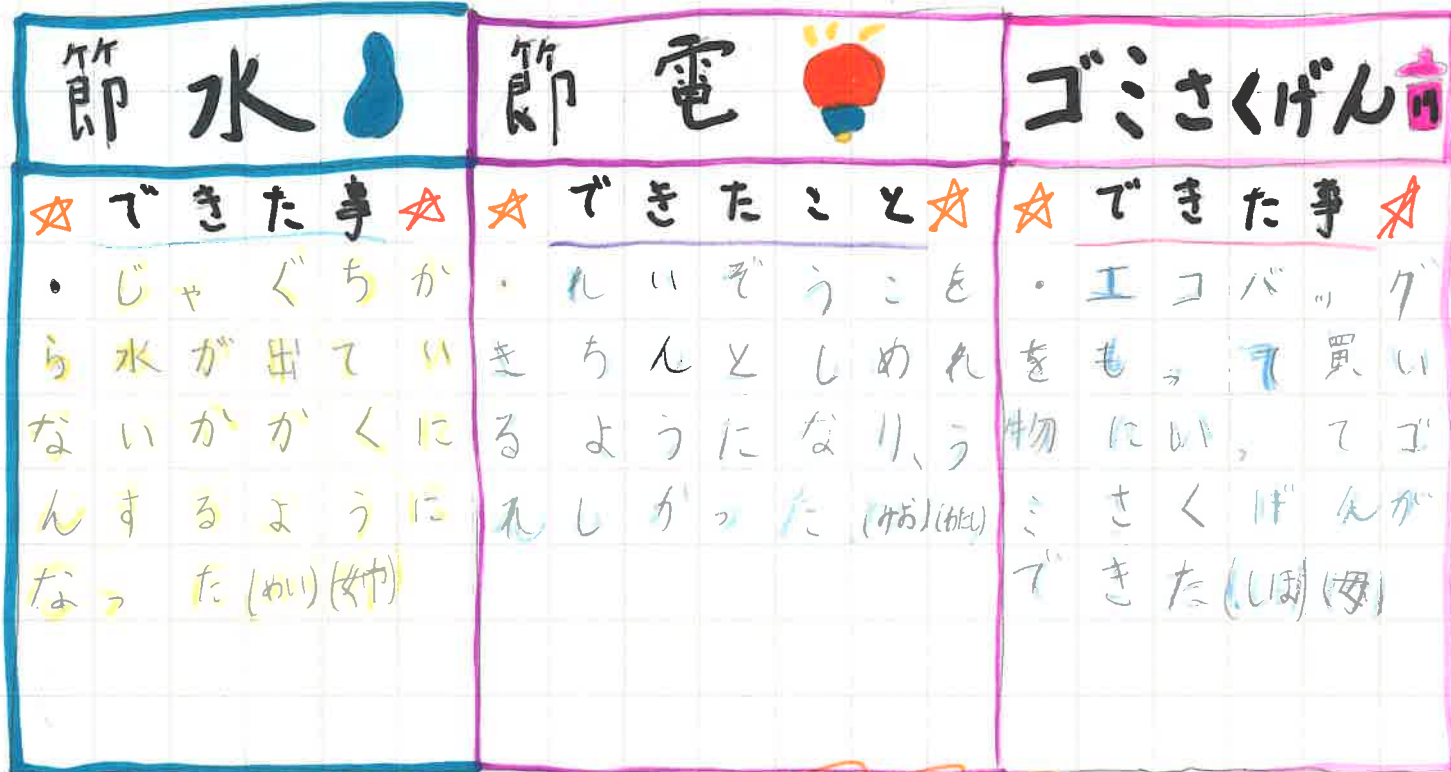 節水
☆できた事☆
・じゃぐちか
ら水が出てい
ないかかくに
んするように
なった(めい)(姉)
節電
☆できたこと☆
・れいぞうこを
きちんとしめれ
るようになり、う
れしかった(みお)(わたし)
ゴミさくげん
☆できた事☆
・エコバッグ
をもって買い
物にいってゴ
ミさくげんが
できた(しほ)(母)